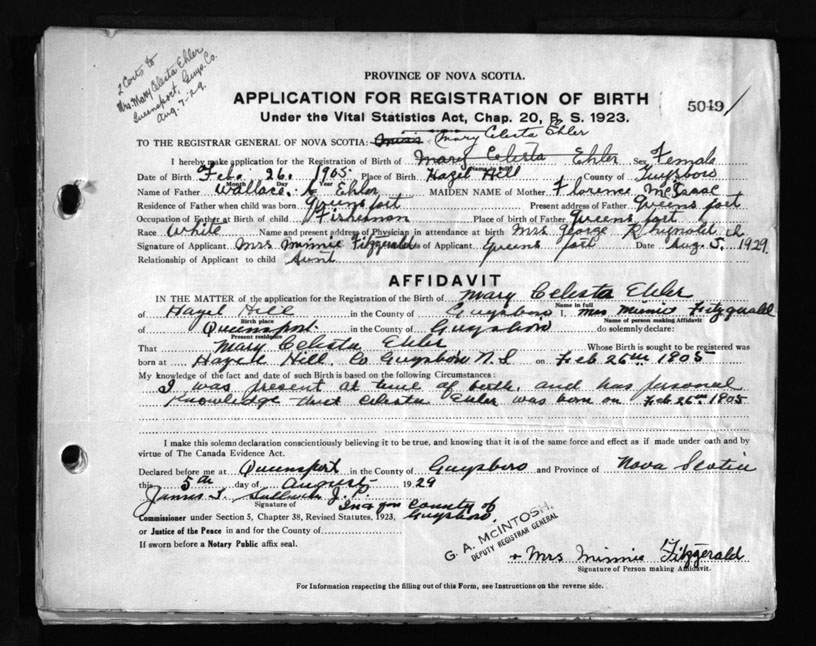 2 Certs to
Mrs. Mary Celesta Ehler
Queensport, Guys. Co.
Aug. 7-29.
PROVINCE OF NOVA SCOTIA.
APPLICATION FOR REGISTRATION OF BIRTH
5049
Under the Vital Statistics Act, Chap. 20, R. S. 1923.
TO THE REGISTRAR GENERAL OF NOVA SCOTIA: Mary Celesta Ehler
I hereby make application for the Registration of Birth of Mary Celesta Ehler Sex Female
Date of Birth Feb. 26. 1905 Place of Birth Hazel Hill County of Guysboro
Month Day Year
Name of Father Wallace. Ehler MAIDEN NAME of Mother Florence McIsaac
Residence of Father when child was born Queensport Present address of Father Queens port
Occupation of Father at Birth of child Fisherman Place of birth of Father Queens port
Race White Name and present address of Physician in attendance at birth Mrs George
Signature of Applicant Mrs Minnie Fitzgerald of Applicant Queens port Date Aug 5, 1929.
Relationship of Applicant to child Aunt
AFFIDAVIT
IN THE MATTER of the application for the Registration of the Birth of Mary Celesta Ehler
Name in full
of Hazel Hill in the County of Guysboro I, Mrs Minnie Fitzgerald
Birth place Name of person making Affidavit
of Queensport. in the County of Guysboro do solemnly declare:
Present residence
That Mary Celesta Ehler Whose Birth is sought to be registered was
born at Hazele Hill. Co Guysboro N.S on Feb 26th 1905
My knowledge of the fact and date of such Birth is based on the following Circumstances:
I was present at time of birth. and has personal
knowledge that Celesta Ehler was born on Feb 26th 1905
I make this solemn declaration conscientiously believing it to be true, and knowing that it is of the same force and effect as if made under oath and by
virtue of The Canada Evidence Act.
Declared before me at Queensport in the County of Guysboro and Province of Nova Scotia
this 5th day of August 1929
James Sullivan J. P.
Signature of In & for County of
Commissioner under Section 5, Chapter 38, Revised Statutes, 1923. Guysboro
or Justice of the Peace in and for the County of
If sworn before a Notary Public affix seal.
G. A. McINTOSH,
DEPUTY REGISTRAR GENERAL
+ Mrs Minnie Fitzgerald
Signature of Person making Affidavit.
For Information respecting the filling out of this Form, see Instructions on the reverse side.